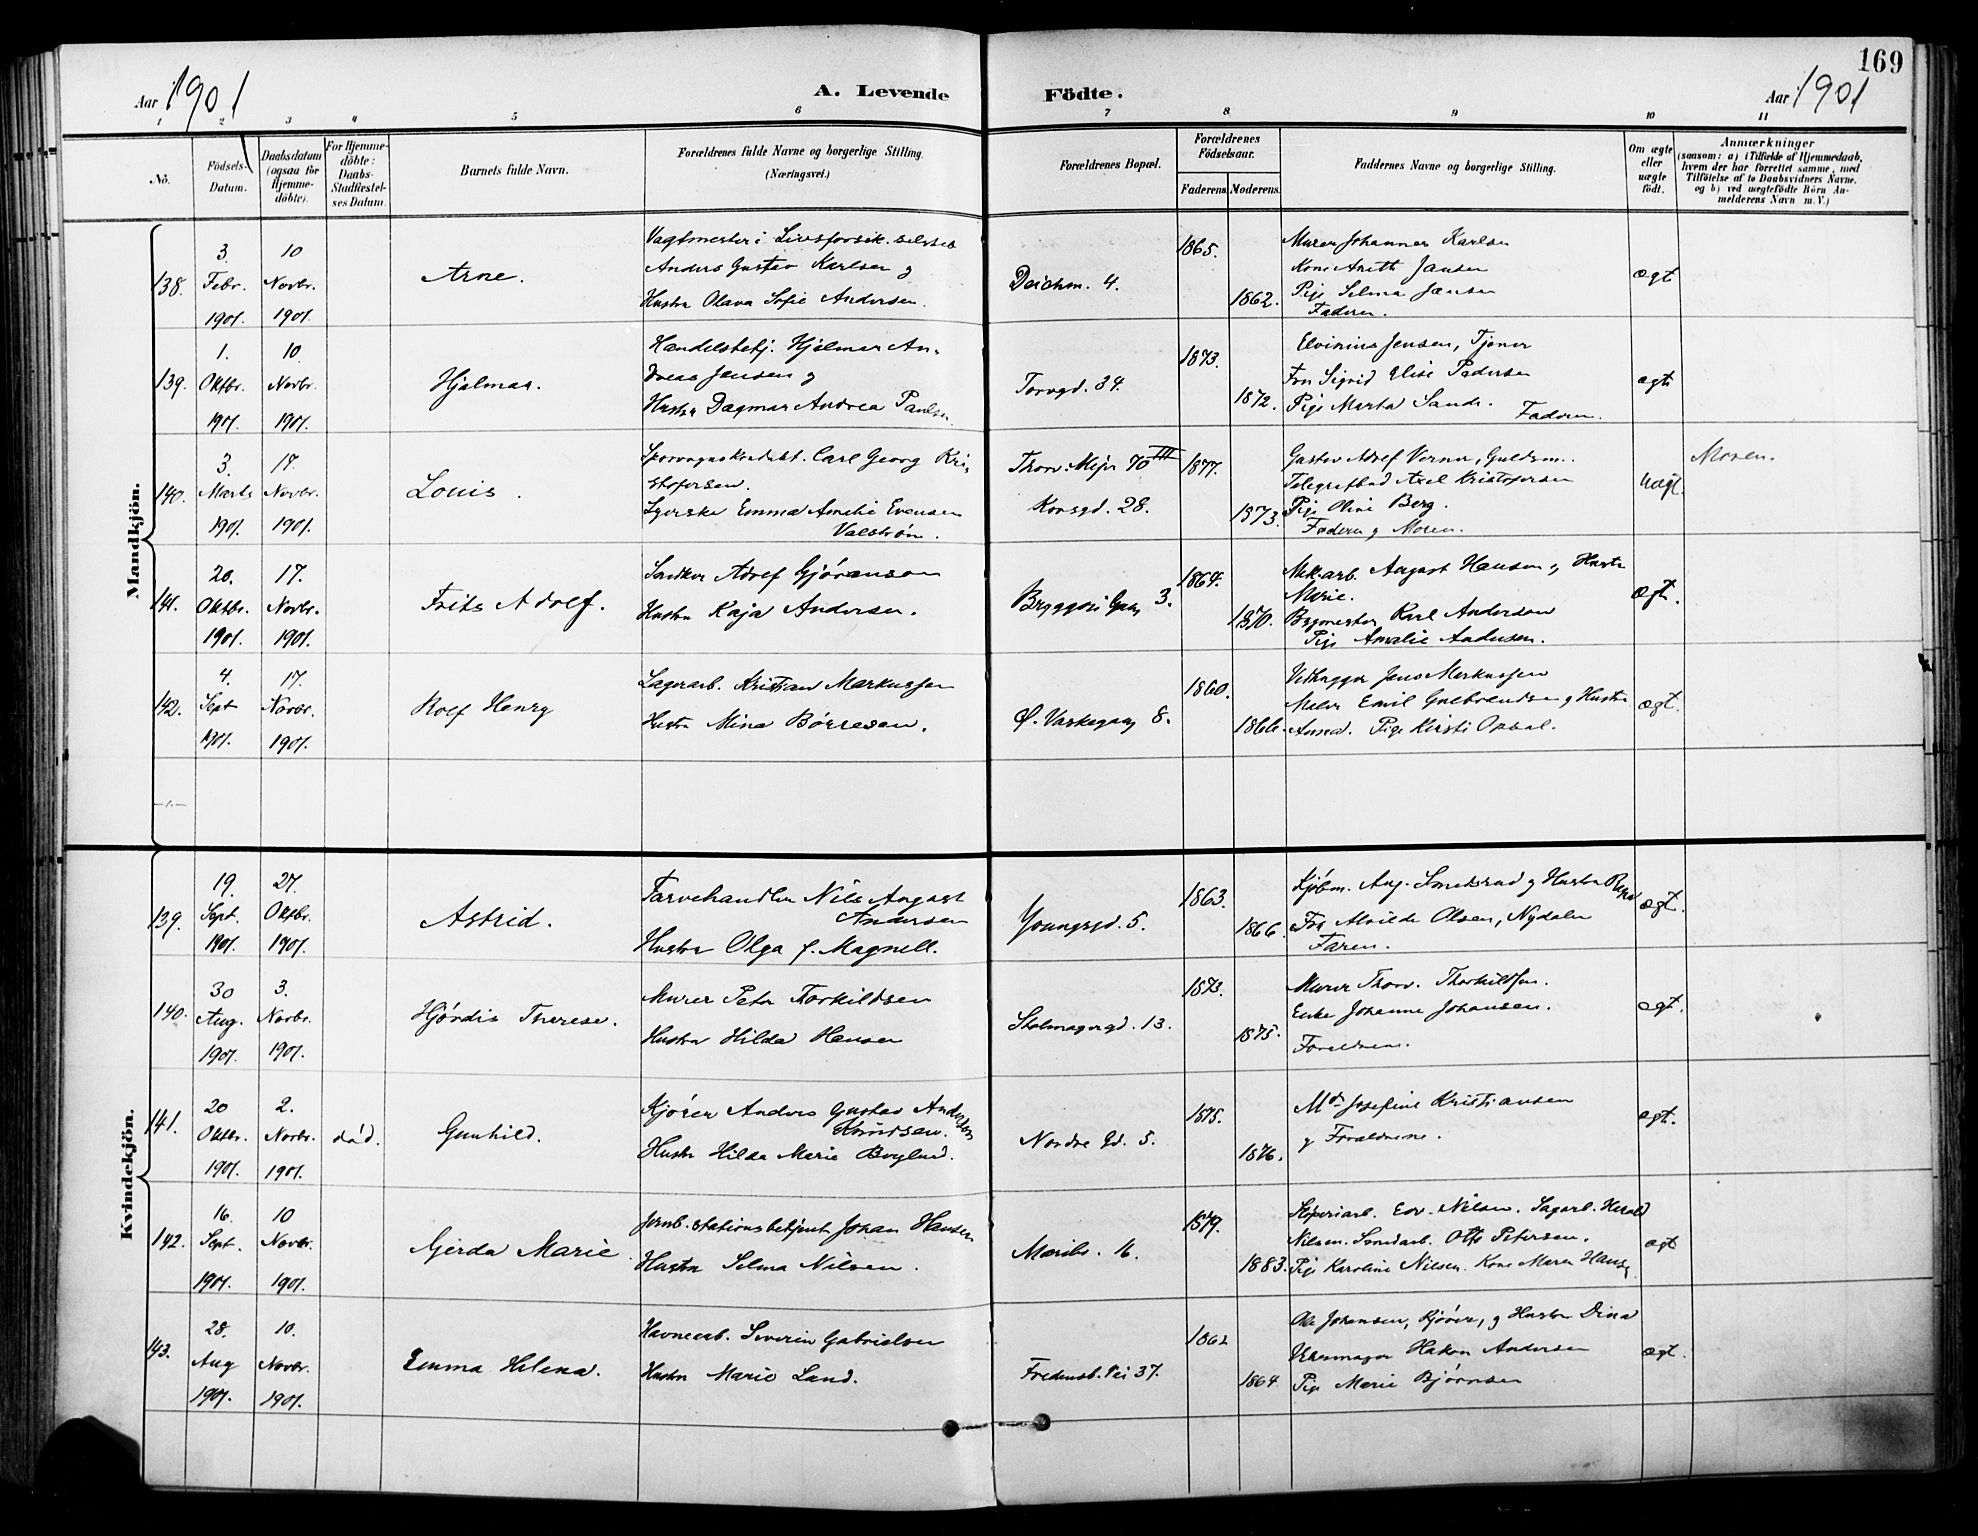 169
Aar 1901
A. Levende
Födte.
Aar 1901
1 2 3 4 5 6 7 8 9 10 11
No.
Födsels-
Datum.
Daabsdatum
(ogsaa for
Hjemme-
döbte).
For Hjemme-
döbte:
Daabs-
Stadfæstel-
ses Datum.
Barnets fulde Navn.
Forældrenes fulde Navne og borgerlige Stilling.
(Næringsvei.)
Forældrenes Bopæl.
Forældrenes
Födselsaar.
Faderens.
Moderens.
Faddernes Navne og borgerlige Stilling.
Om ægte
eller
uægte
födt.
Anmærkninger
(saasom: a) i Tilfælde af Hjemmedaab,
hvem der har forrettet samme, med
Tilföielse af to Daabsvidners Navne.
og b) ved uægtefödte Börn An-
melderens Navn m. V.)
Mandkjön.
138.
3.
Febr.
1901.
10
Novbr.
1901.
Arne.
Vagtmester i Livsforsik.
Anders Gustav Karlsen g
Hustru Olava Sofie Andersen.
Deichm. 4.
1865.
1862.
Murer Johannes Karlsen
Kone Jansen
Pige Selma Jansen
Faderen.
ægt
139.
1.
Oktbr.
1901.
10.
Novbr.
1901.
Hjalmar.
Handelsbetj. Hjalmar An-
dreas Jensen g
Hustru Dagmar Andrea Paulsen
Torvgd. 34.
1873.
1872.
Elvinius Jensen, Tjener
Fru Sigrid Elise Pedersen
Pige Marta Sande. Faderen.
ægte
140.
3.
Marts
1901.
17.
Novbr.
1901.
Louis.
Sporvognskondukt. Carl Georg Kri-
stofersen.
Syerske Emma Amalie Evensen
Valstrøm.
Thorv. Meyer 70 III
Korsgd. 28.
1877.
1873.
Gustav Adolf Verner, Guldsm.
Telegrafbud Axel Kristofersen
Pige Oline Berg.
Faderen g Moren.
uægt.
Moren.
141.
20.
Oktbr.
1901.
17.
Novbr.
1901.
Frits Adolf.
Snedker Adolf Gjöranson
Hustru Kaja Andersen.
Bryggeri Gang 3.
1864.
1870.
Mek. arb. August Hansen g Hustru
Marie.
Bygmester Karl Anderson
Pige Amalie Andersen.
ægt.
142.
4.
Sept
1901.
17.
Novbr.
1901.
Rolf Henry
Lagerarb. Kristian Markussen
Hustru Mina Børresen.
Ø. Vaskegang 8.
1860.
1866.
Vedhugger Jens Markussen
Maler Emil Gulbrandsen g Hustru
Anna. Pige Kirsti Opdal.
ægt.
Kvindekjön.
139.
19.
Sept.
1901.
27.
Oktbr.
1901.
Astrid.
Farvehandler Nils August
Andersen
Hustru Olga f. Magnell.
Youngsgd. 5.
1863.
1866.
Kjøbm. Aug. Smedsrud g Hustru
Fru Alvilde Olsen, Nydalen
Faren.
ægt.
140.
30
Aug.
1901.
3.
Novbr.
1901.
Hjördis Therese.
Murer Peter Torkildsen
Hustru Hilda Hansen
Stolmagergd. 13.
1873.
1875.
Murer Thorv. Thorkildsen.
Enke Johanne Johansen.
Forældrene.
ægt.
141.
20
Oktbr.
1901.
2.
Novbr.
1901.
død.
Gunhild.
Kjører Anders Gustav Andersen
Knudsen.
Hustru Hilda Marie Boglund.
Nordre Gd. 5.
1875.
1876.
Md. Josefine Kristiansen
g Forældrene.
ægt.
142.
16.
Sept.
1901.
10
Novbr.
1901.
Gjerda Marie.
Jernb. stationsbetjent Johan Hansen
Hustru Selma Nilsen.
Maribo. 16.
1879.
1883.
Sliperiarb. Edv. Nilsen. Sagarb. Harald
Nilsen. Smedarb. Otto Petersen.
Pige Karoline Nilsen. Kone Maren Hansen
ægt
143.
28.
Aug
1901.
10.
Novbr.
1901.
Emma Helena.
Havnearb. Severin Gabrielsen
Hustru Marie Lund.
Fredensb. Vei 37.
1862
1864.
Ole Johansen, Kjører, g Hustru Dina
Uhrmager Hakon Andersen
Pige Marie Bjørnsen
ægt.